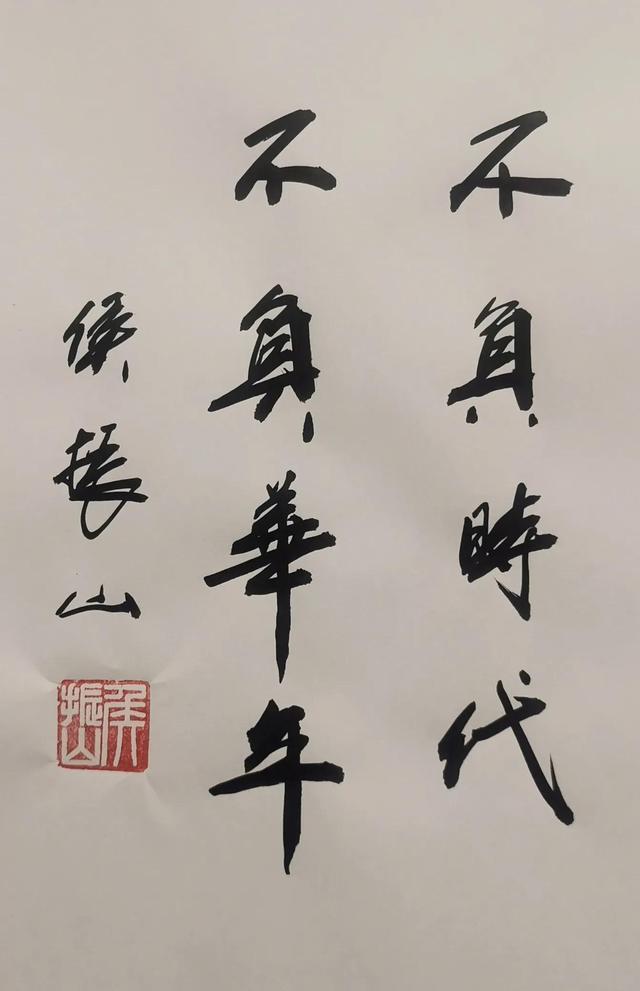 不負時代
不負華年
侯振山
侯振山